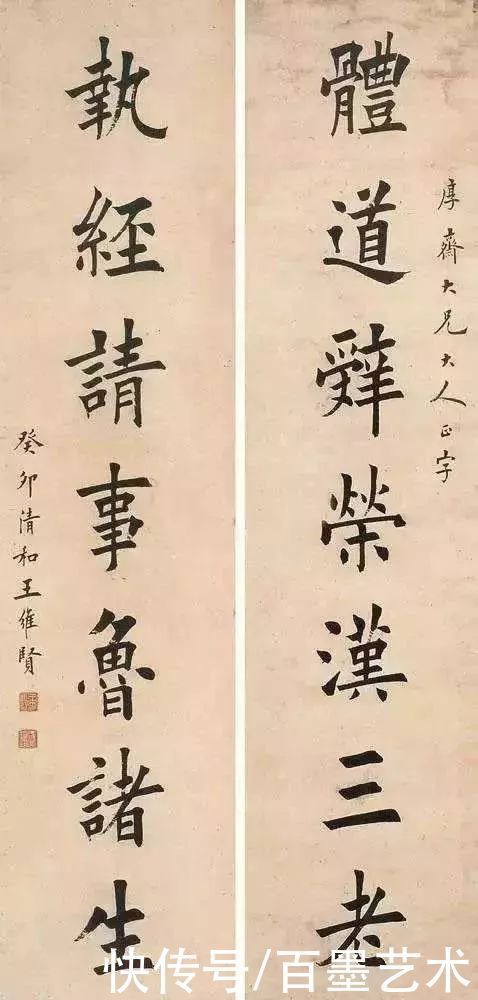 厚齋大兄大人正字
體道辭榮漢三老
執經請事魯諸生
癸卯清和王維賢
快传号/百墨艺术